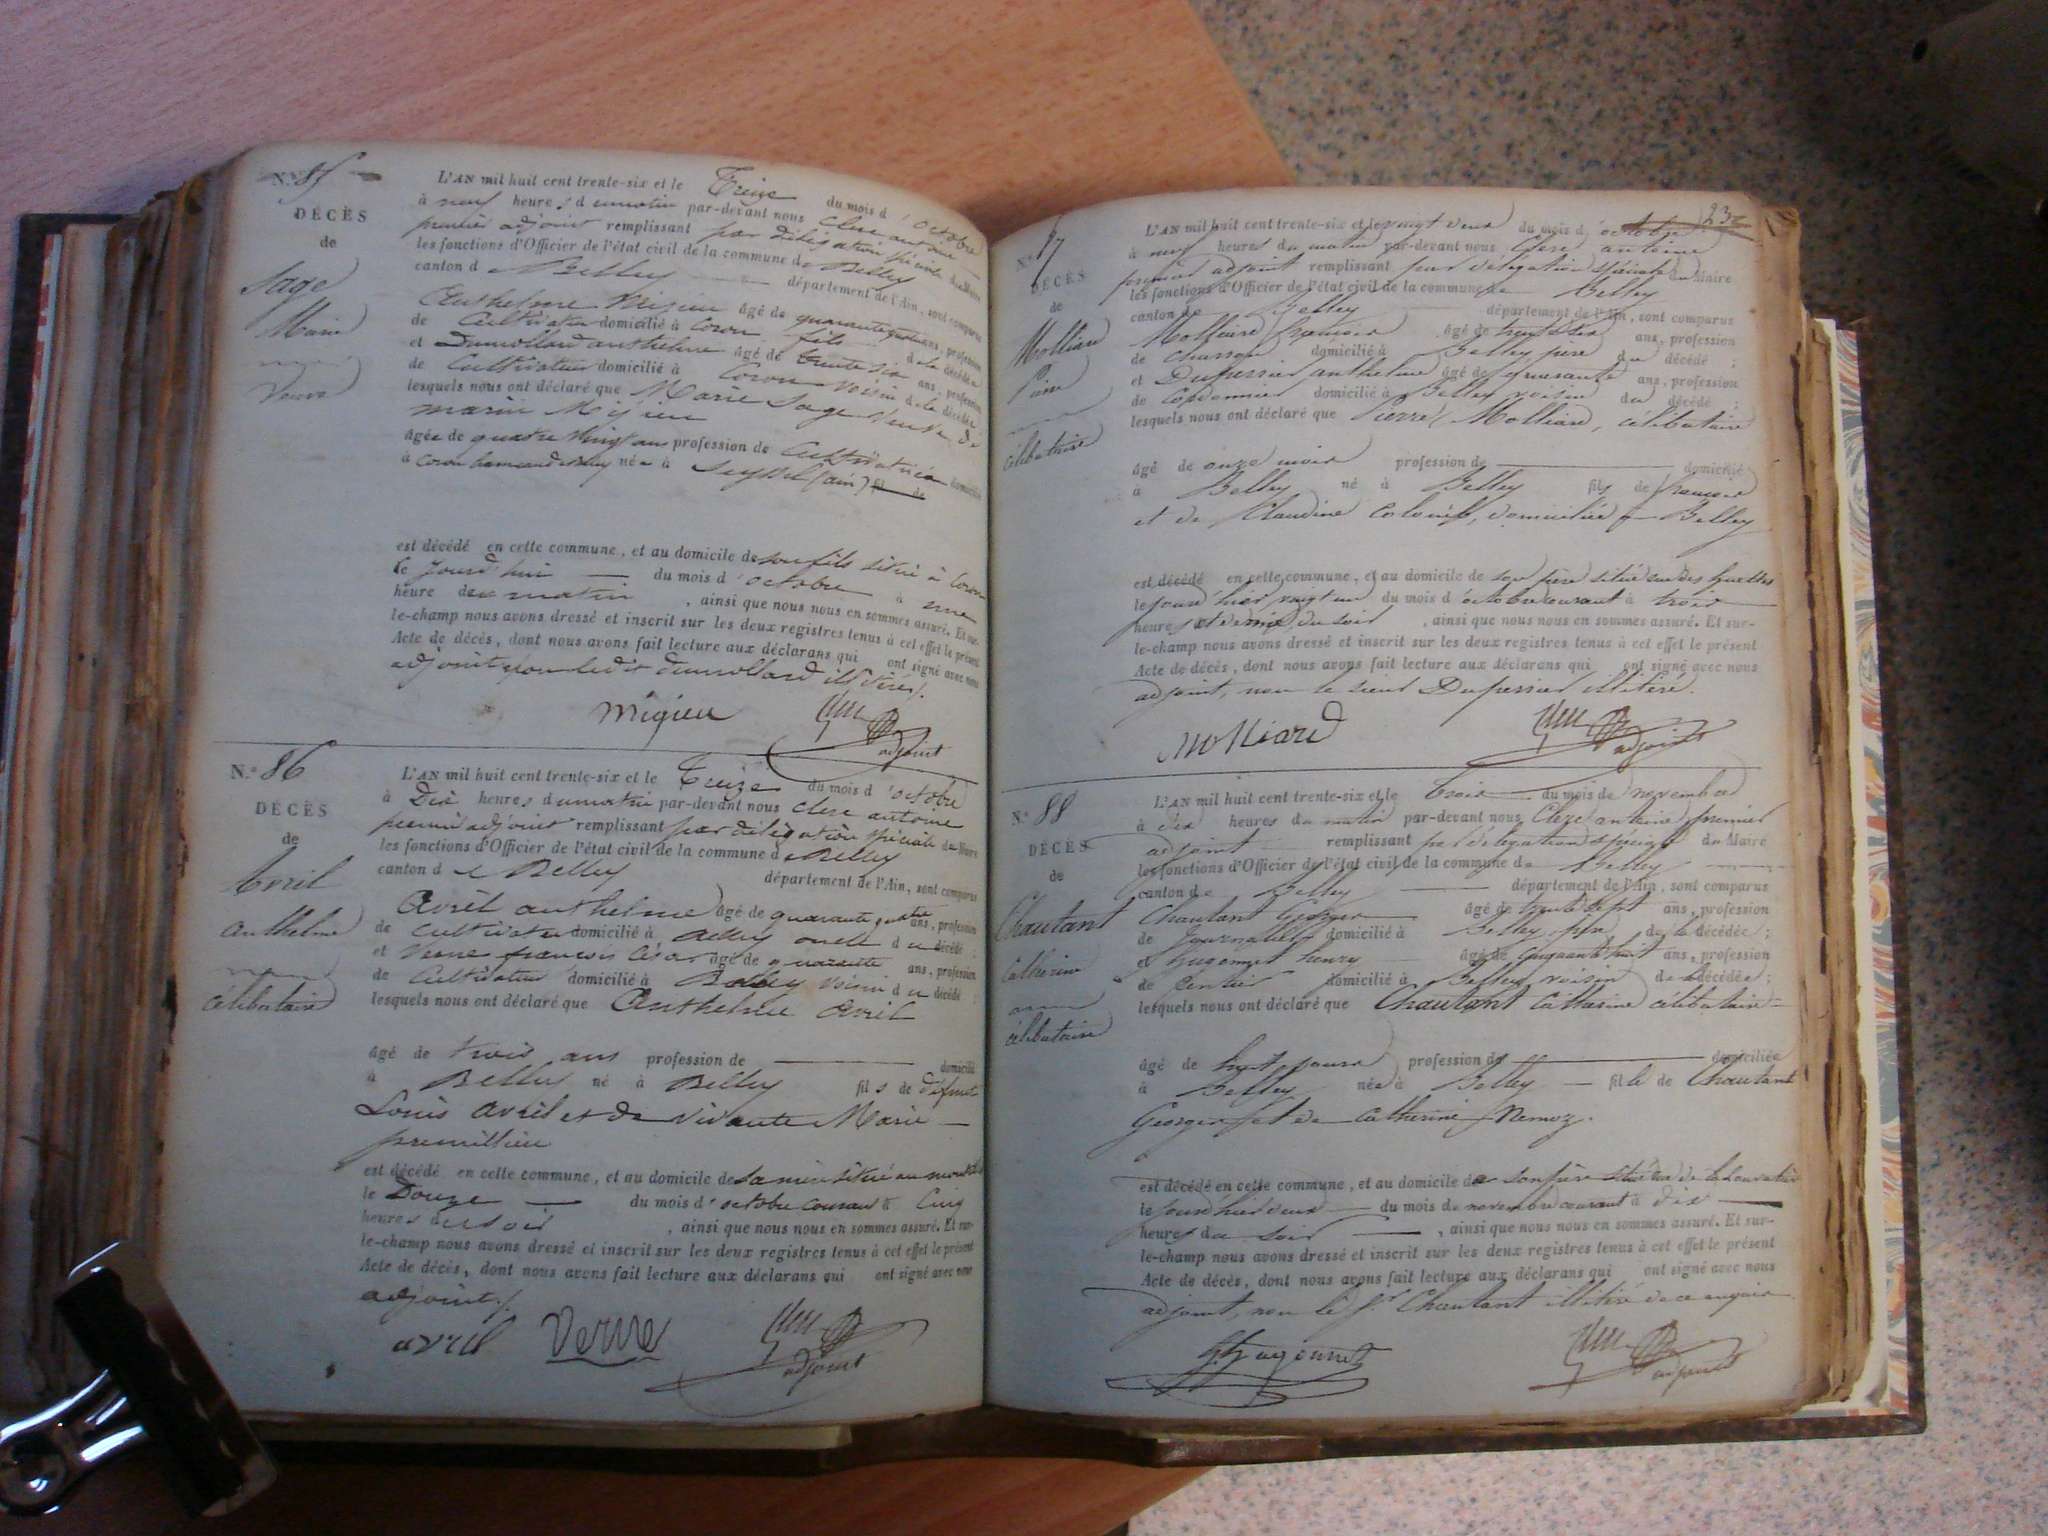 N.º 85
DÉCÈS
de
Sage
Marie
Veuve
L'AN mil huit cent trente-six et le Treize du mois d'octobre
à neuf heures du matin par-devant nous Clerc antoine
premier adjoint remplissant par délégation spéciale du Maire
les fonctions d'Officier de l'état civil de la commune de Belley
canton de Belley département de l'Ain, sont comparus
Anthelme Migieu âgé de quarante ans, profession
de Cultivateur domicilié à Coron fils de la décédée
et Dumollard anthelme âgé de trente six ans, profession
de Cultivateur domicilié à Coron voisin de la décédée
lesquels nous ont déclaré que Marie Sage Veuve de
marin Migieu
âgée de quatre vingt ans profession de Cultivatrice domiciliée
à Coron hameau de Belley née à Seyssel (ain) fil de
est décédé en cette commune, et au domicile de son fils situé à Coron
le jourd'hui du mois d'octobre à une
heure du matin, ainsi que nous nous en sommes assuré. Et sur-
le-champ nous avons dressé et inscrit sur les deux registres tenus à cet effet le présent
Acte de décès, dont nous avons fait lecture aux déclarans qui ont signé avec nous
adjoint non ledit dumollard illitéré.
migieu adjoint
N.º 86
DÉCÈS
de
Avril
Anthelme
célibataire
L'AN mil huit cent trente-six et le Treize du mois d'octobre
à Dix heures du matin par-devant nous Clerc antoine
premier adjoint remplissant par délégation spéciale du Maire
les fonctions d'Officier de l'état civil de la commune de Belley
canton de Belley département de l'Ain, sont comparus
Avril anthelme âgé de quarante quatre ans, profession
de Cultivateur domicilié à Belley oncle du décédé
et Verne françois César âgé de quarante ans, profession
de Cultivateur domicilié à Belley voisin du décédé
lesquels nous ont déclaré que Anthelme Avril
âgé de trois ans profession de domicilié
à Belley né à Belley fils de défunt
Louis Avril et de vivante Marie
premillieu
est décédé en cette commune, et au domicile de sa mère situé au
le Douze du mois d'octobre courant à Cinq
heures du soir, ainsi que nous nous en sommes assuré. Et sur-
le-champ nous avons dressé et inscrit sur les deux registres tenus à cet effet le présent
Acte de décès, dont nous avons fait lecture aux déclarans qui ont signé avec nous
adjoint.
avril Verne adjoint
232
N.º 87
DÉCÈS
de
Molliard
Pierre
célibataire
L'AN mil huit cent trente-six et le vingt deux du mois d'octobre
à neuf heures du matin par-devant nous Clerc antoine
premier adjoint remplissant par délégation spéciale du Maire
les fonctions d'Officier de l'état civil de la commune de Belley
canton de Belley département de l'Ain, sont comparus
Molliard françois âgé de trente six ans, profession
de Charron domicilié à Belley père du décédé;
et Duperrier anthelme âgé de quarante ans, profession
de Cordonnier domicilié à Belley voisin du décédé;
lesquels nous ont déclaré que Pierre Molliard, célibataire
âgé de onze mois profession de domicilié
à Belley né à Belley fils de françois
et de Claudine Colomb, domiciliée à Belley
est décédé en cette commune, et au domicile de son père situé rue des
le jour d'hier vingt un du mois d'octobre courant à trois
heures et demie du soir, ainsi que nous nous en sommes assuré. Et sur-
le-champ nous avons dressé et inscrit sur les deux registres tenus à cet effet le présent
Acte de décès, dont nous avons fait lecture aux déclarans qui ont signé avec nous
adjoint, non le sieur Duperrier illitéré.
Molliard adjoint
N.º 88
DÉCÈS
de
Chautant
Catherine
célibataire
L'AN mil huit cent trente-six et le Trois du mois de novembre
à dix heures du matin par-devant nous Clerc antoine premier
adjoint remplissant par délégation spéciale du Maire
les fonctions d'Officier de l'état civil de la commune de Belley
canton de Belley département de l'Ain, sont comparus
Chautant Georges âgé de trente sept ans, profession
de Journalier domicilié à Belley père de la décédée;
et hugonnet henry âgé de cinquante huit ans, profession
de Rentier domicilié à Belley voisin de la décédée;
lesquels nous ont déclaré que Chautant Catherine célibataire
âgé de huit jours profession de domiciliée
à Belley née à Belley fille de Chautant
Georges et de Catherine Nemoz.
est décédé en cette commune, et au domicile de son père situé rue de
le jour d'hier deux du mois de novembre courant à dix
heures du soir, ainsi que nous nous en sommes assuré. Et sur-
le-champ nous avons dressé et inscrit sur les deux registres tenus à cet effet le présent
Acte de décès, dont nous avons fait lecture aux déclarans qui ont signé avec nous
adjoint, non le Sr Chautant illitéré de ce enquis
hugonnet adjoint